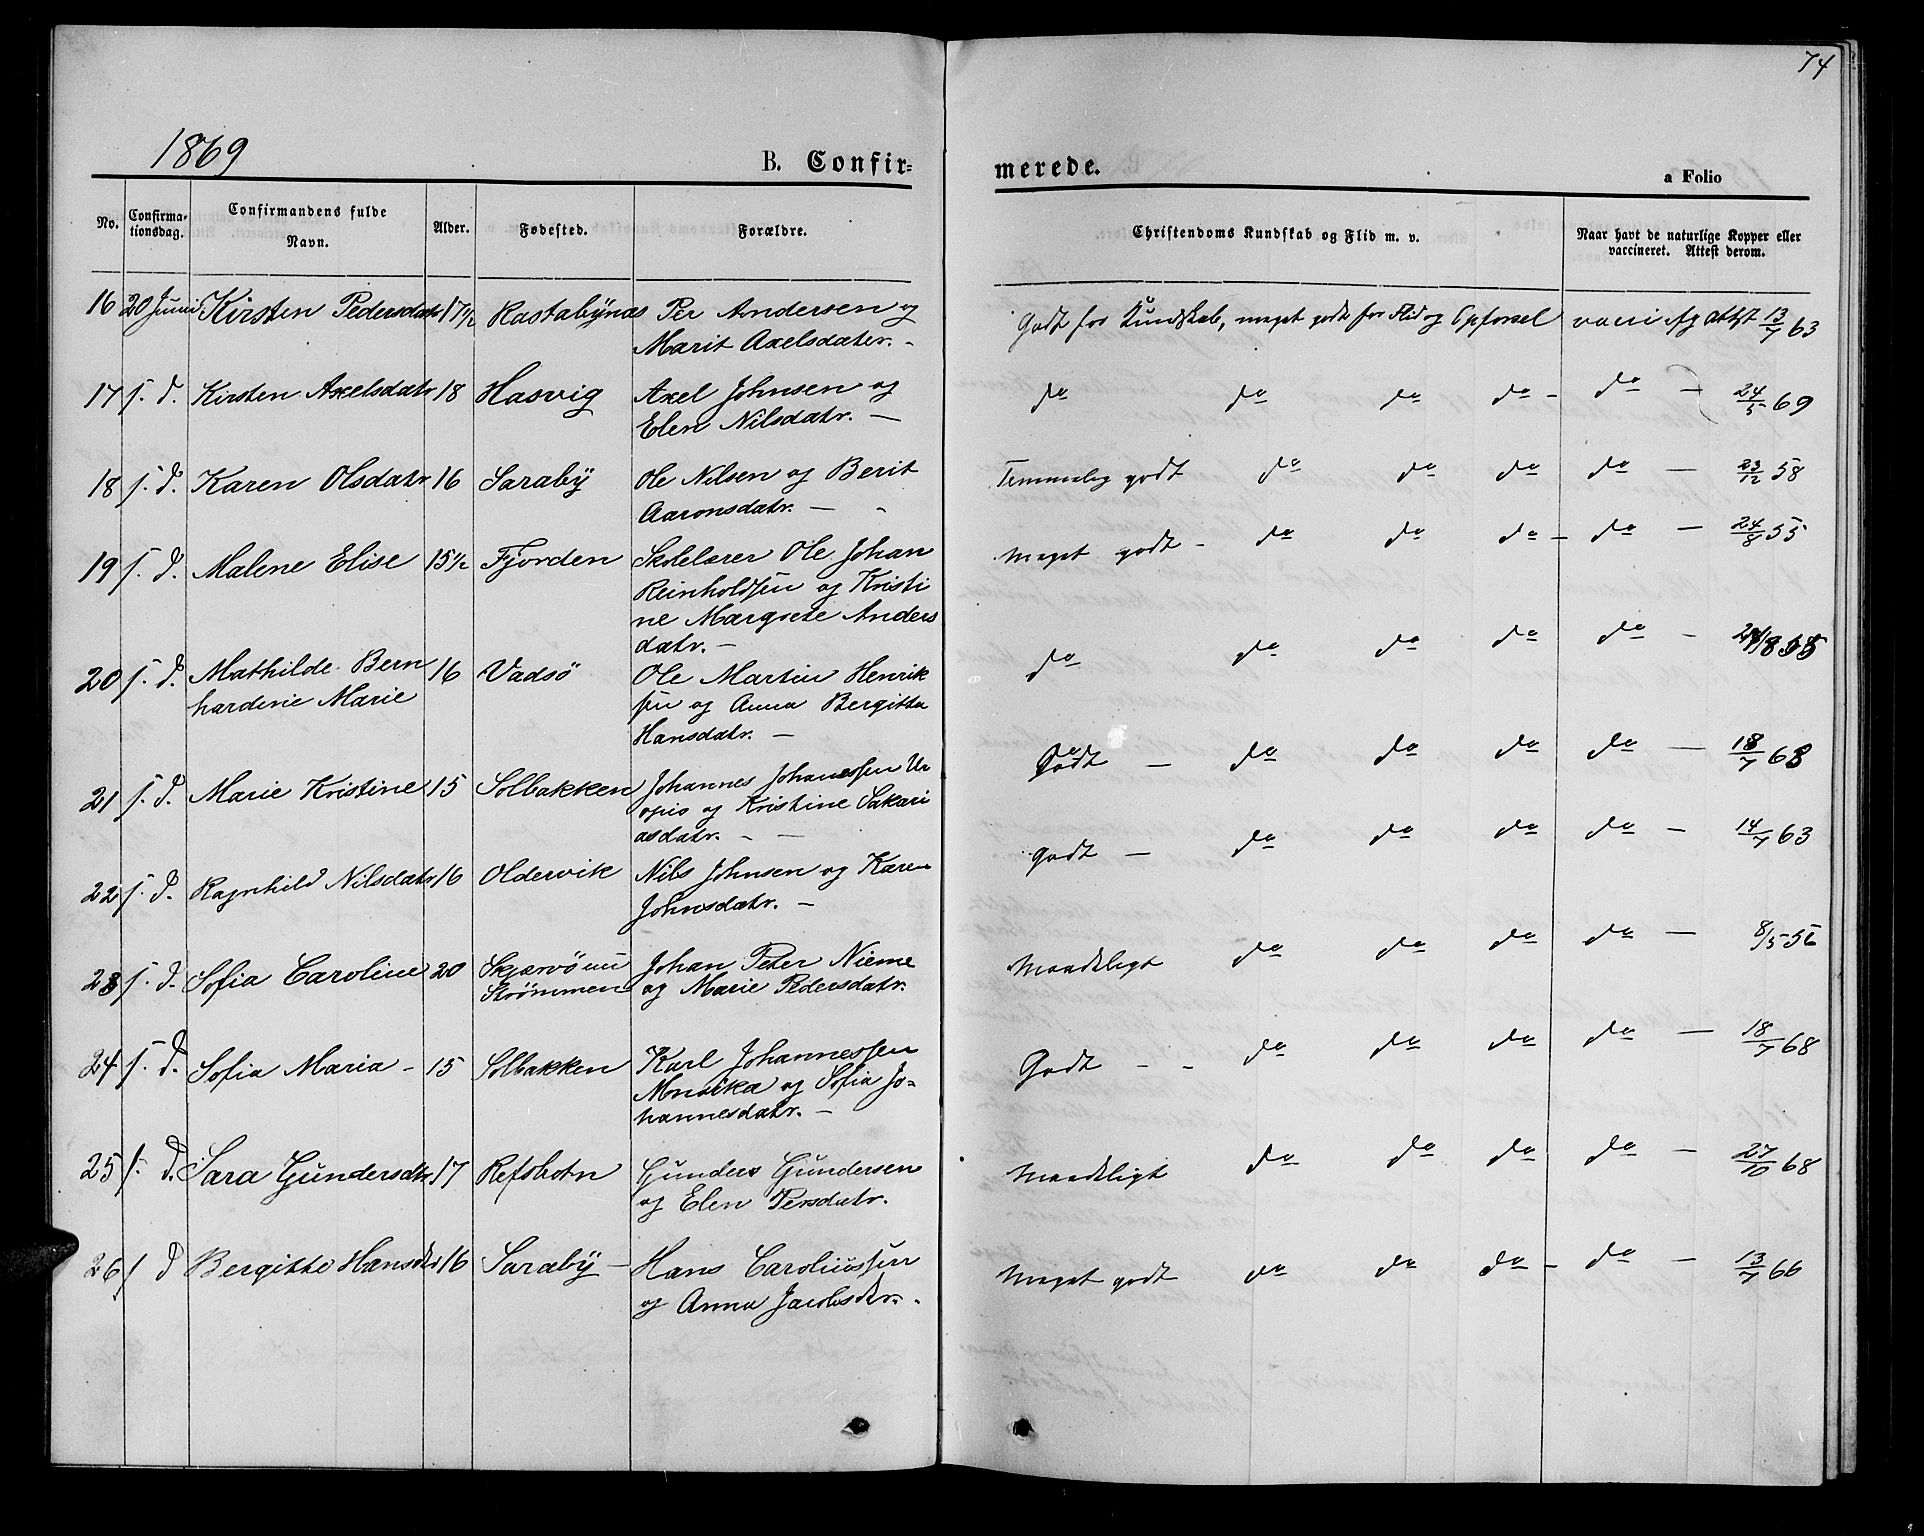 74
1869
B. Confir=
merede.
a Folio
No.
Confirma-
tionsdag.
Confirmandens fulde
Navn.
Alder.
Fødested.
Forældre.
Christendoms Kundskab og Flid m. v.
Naar havt de naturlige Kopper eller
vaccineret. Attest derom.
16 20 Juni Kirsten Pedersdatr 17 1/2 Rastabynæs Per Andersen og
Marit Axelsdater. -
Godt for Kundskab, meget godt for Flid og Opførsel vacc 13/7 63
17 s. d. Kirsten Axelsdatr 18 Hasvig Axel Johnsen og
Elen Nilsdatr. —
do do do do - do — 24/5 69
18 s. d. Karen Olsdatr 16 Saraby Ole Nilsen og Berit
Aaronsdatr. —
Temmelig godt do do do do — 23/12 58
19 s. d. Malene Elise 15 1/2 Fjorden Skolelærer Ole Johan
Reinholdsen og Kristi
ne Margrete Anders
datr. —
Meget godt - do do do - do — 24/8 55
20 s. d. Mathilde Bern 16 Vadsö Ole Martin Henrik
hardine Marie sen og Anna Bergitta
Hansdatr. —
do do do do do — 24/8 55
21 s. d. Marie Kristine 15 Solbakken Johannes Johanessen Ur
opio og Kristine Sakari
asdatr. - —
Godt — do do do do — 18/7 68
22 s. d. Ragnhild Nilsdatr 16 Oldervik Nils Johnsen og Karen
Johnsdatr. —
Godt — do do do do — 14/7 63
23 s. d. Sofia Caroline 20 Skjærvö
Strömmen
Johan Peter Nieme
og Marie Pedersdatr.
Maadeligt do do do do — 8/5 56
24 s. d. Sofia Maria - 15 Solbakken Karl Johannessen
og Sofia Jo=
hannesdatr. —
Godt - - do do do do — 18/7 68
25 s. d. Sara Gundersdtr 17 Refsbotn Gunders Gundersen
og Elen Persdatr.
Maadeligt do do do do — 27/10 68
26 s d Bergitte Hansdtr 16 Saraby — Hans Caroliussen
og Anna Jacobsdtr. -
Meget godt do do do - do — 13/7 66